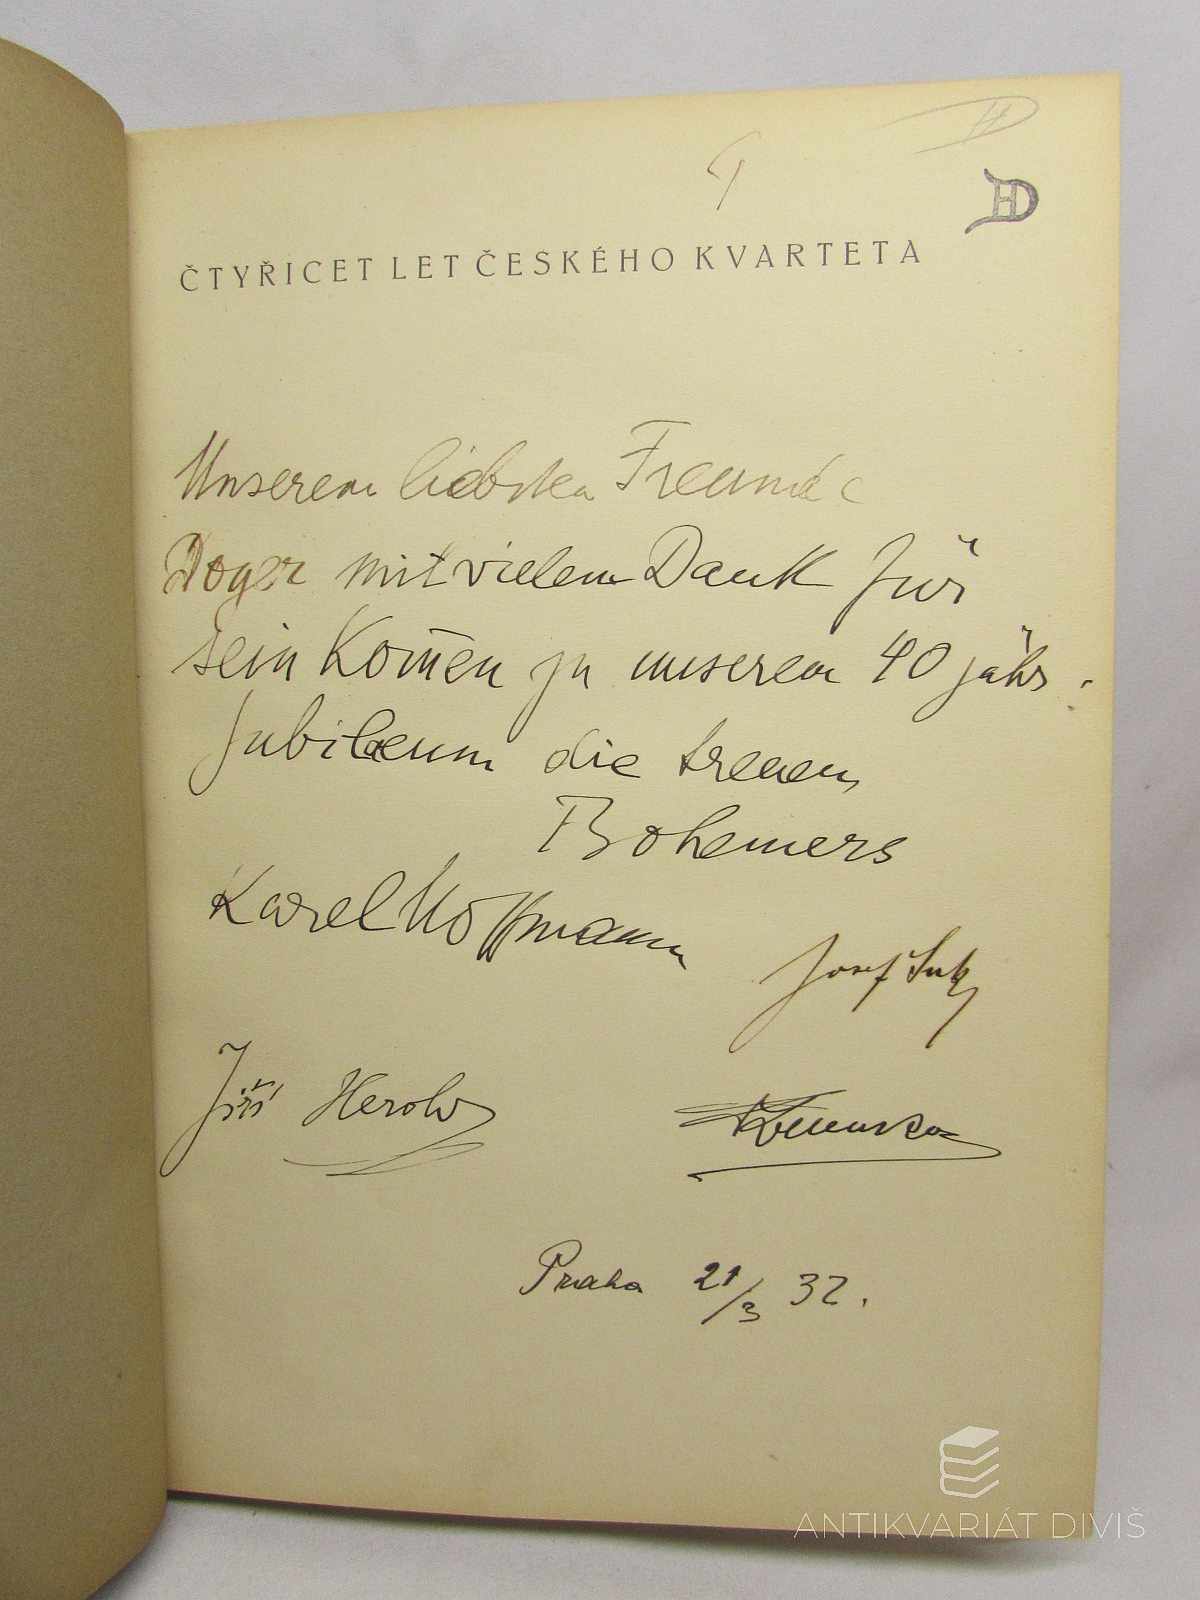 HD
ČTYŘICET LET ČESKÉHO KVARTETA
Unserem liebsten Freunde
Doger mit vielem Dank für
sein Kom̄en zu unserem 40 jähr.
Jubilaeum die treuen
Bohemers
Karel Hoffmann
Josef Suk
Jiří Herold
Praha 21/3 32.
ANTIKVARIÁT DIVIŠ